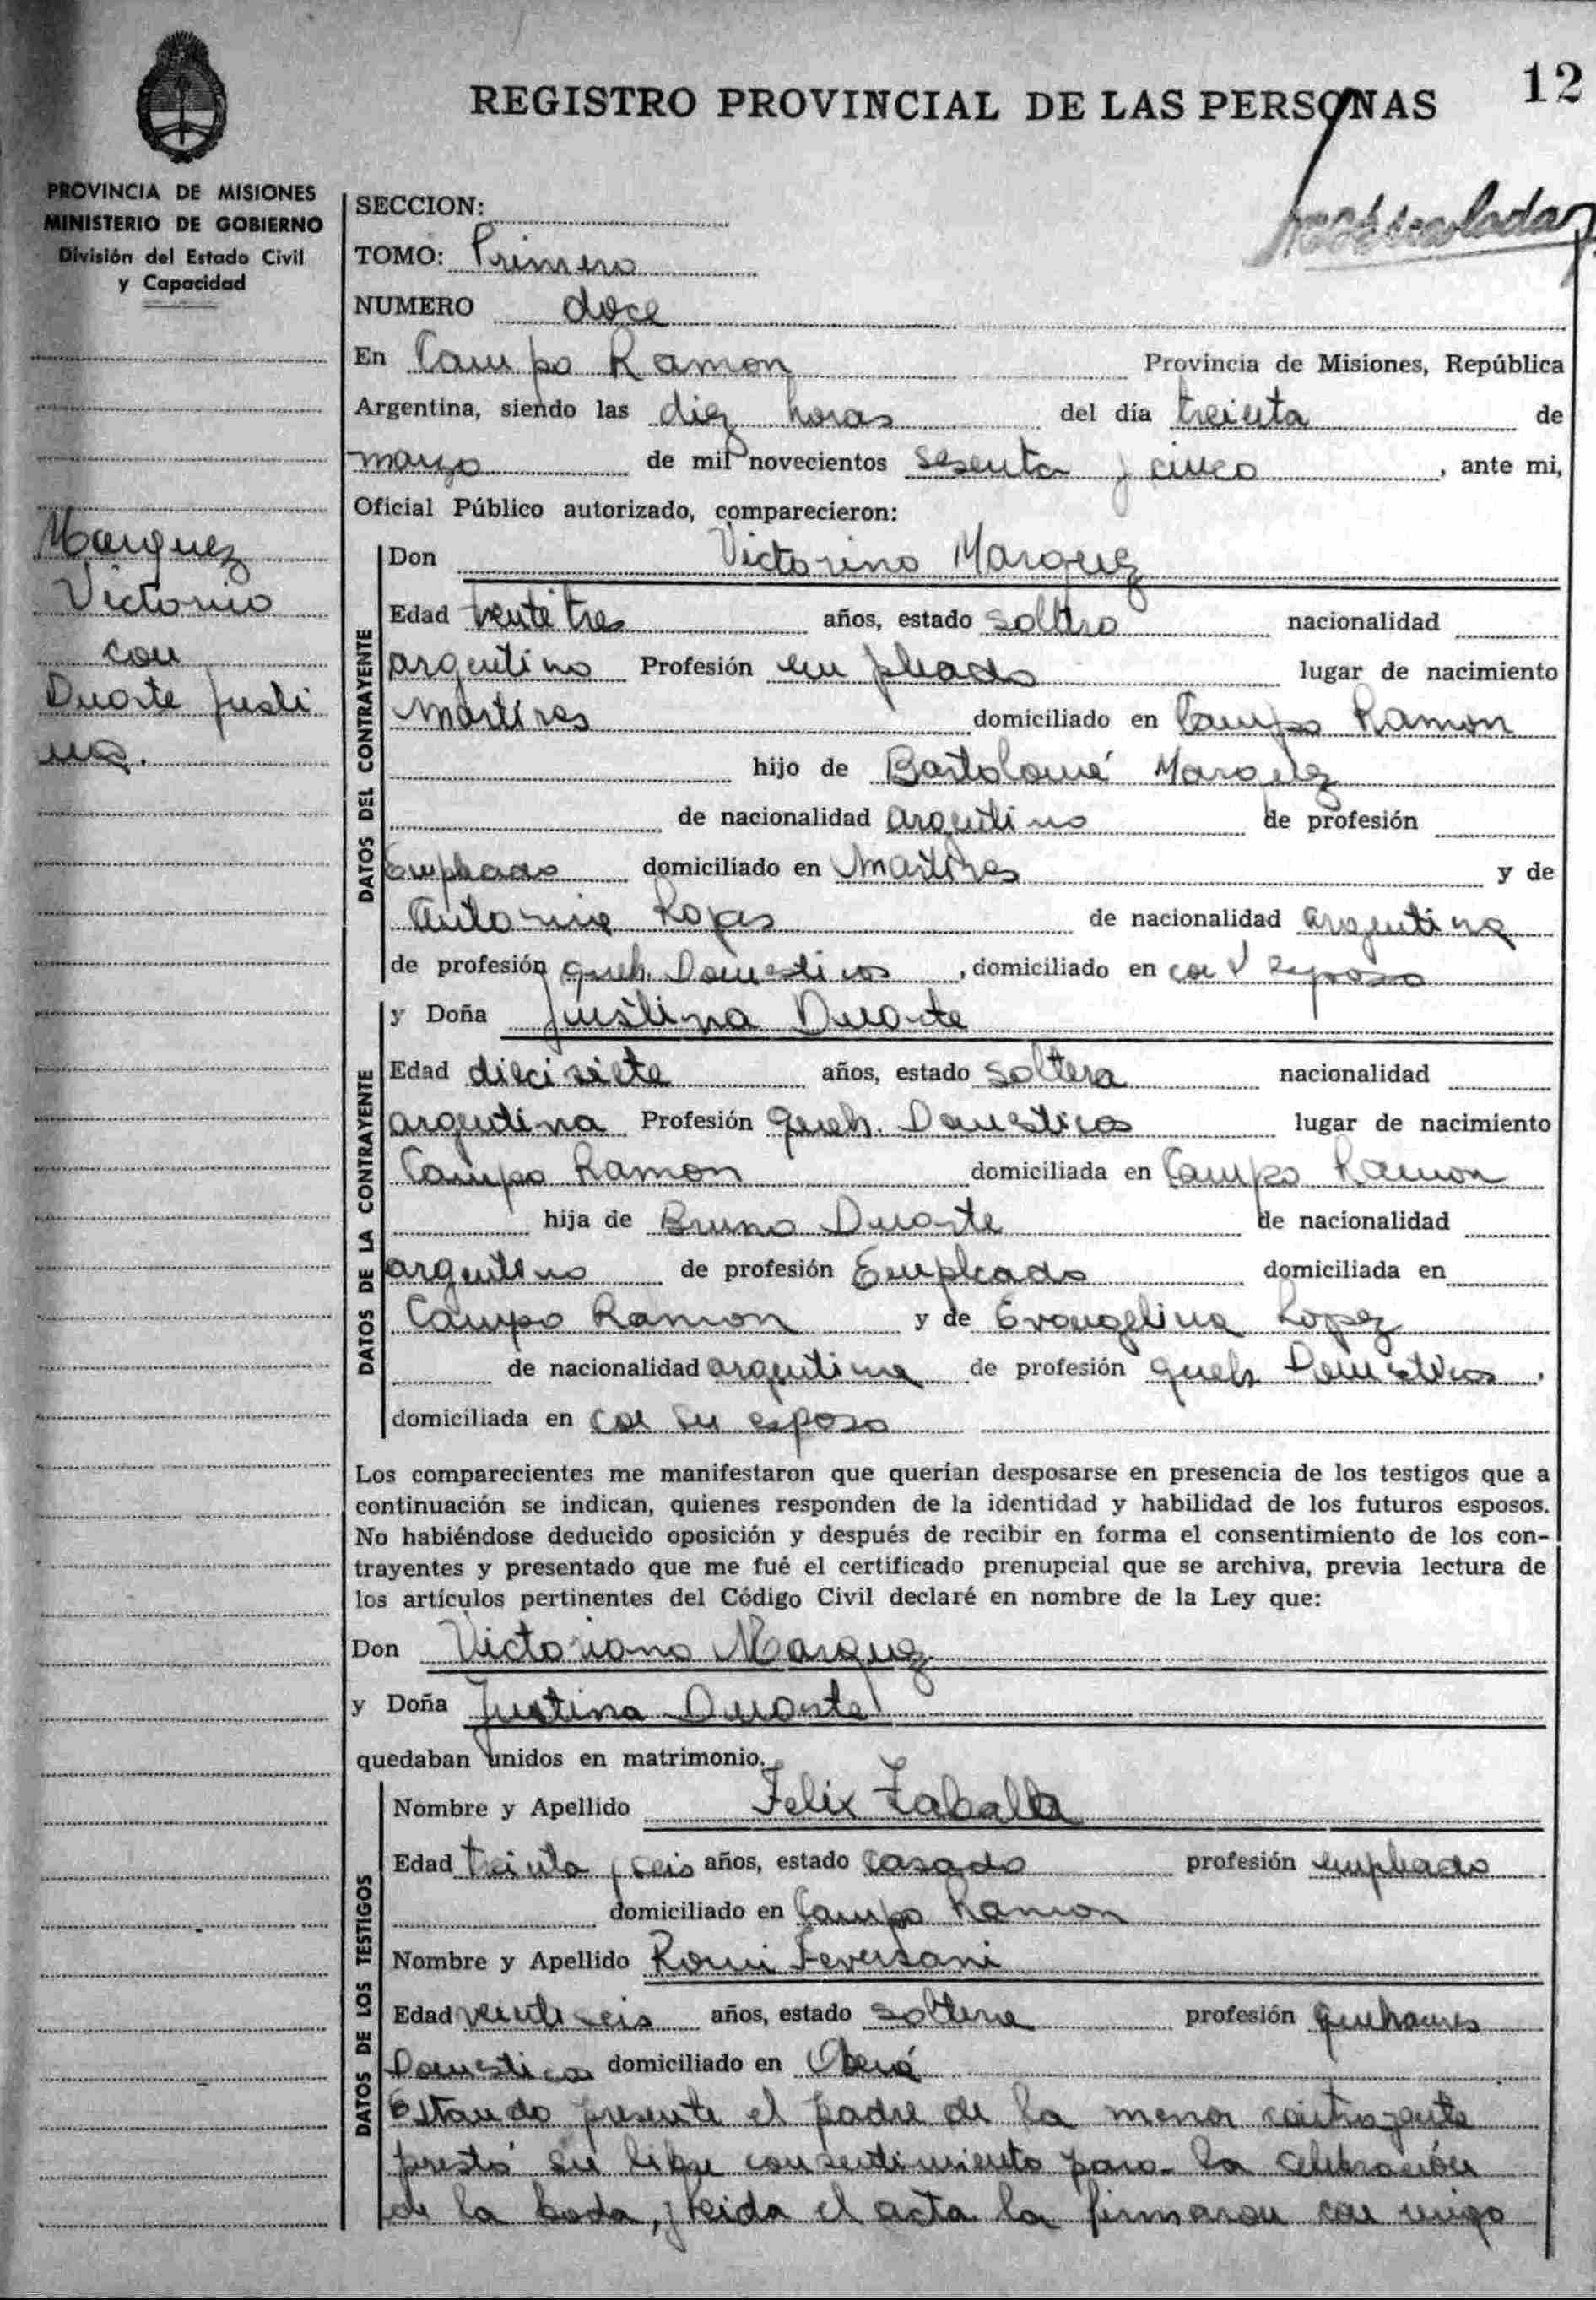 REGISTRO PROVINCIAL DE LAS PERSONAS
12
PROVINCIA DE MISIONES
MINISTERIO DE GOBIERNO
División del Estado Civil
y Capacidad
SECCION:
TOMO: Primero
NUMERO doce
En Campo Ramon Provincia de Misiones, República
Argentina, siendo las diez horas del día treinta de
marzo de mil novecientos sesenta y cinco, ante mi,
Oficial Público autorizado, comparecieron:
Marquez
Victorio
con
Duarte Justi
na.
DATOS DEL CONTRAYENTE
Don Victorino Marquez
Edad treinta tres años, estado soltero nacionalidad
argentino Profesión empleado lugar de nacimiento
Martires domiciliado en Campo Ramon
hijo de Bartolomé Marquez
de nacionalidad argentino de profesión
Empleado domiciliado en Martires y de
Antonia Rojas de nacionalidad argentina
de profesión queh. Domesticos, domiciliado en esposo
DATOS DE LA CONTRAYENTE
y Doña Justina Duarte
Edad diecisiete años, estado soltera nacionalidad
argentina Profesión queh. Domesticos lugar de nacimiento
Campo Ramon domiciliada en Campo Ramon
hija de Bruno Duarte de nacionalidad
argentino de profesión Empleado domiciliada en
Campo Ramon y de Evangelina Lopez
de nacionalidad argentina de profesión queh Domesticos,
domiciliada en con su esposo
Los comparecientes me manifestaron que querían desposarse en presencia de los testigos que a
continuación se indican, quienes responden de la identidad y habilidad de los futuros esposos.
No habiéndose deducido oposición y después de recibir en forma el consentimiento de los con-
trayentes y presentado que me fué el certificado prenupcial que se archiva, previa lectura de
los artículos pertinentes del Código Civil declaré en nombre de la Ley que:
Don Victoriano Marquez
y Doña Justina Duarte
quedaban unidos en matrimonio.
DATOS DE LOS TESTIGOS
Nombre y Apellido Felix Zaballa
Edad treinta y seis años, estado casado profesión empleado
domiciliado en Campo Ramon
Nombre y Apellido Romi Feversani
Edad veintiseis años, estado soltera profesión quehaceres
Domesticos domiciliado en Oberá
Estando presente el padre de la menor contrayente
prestó su libre consentimiento para la celebración
de la boda, y leida el acta la firmaron con migo